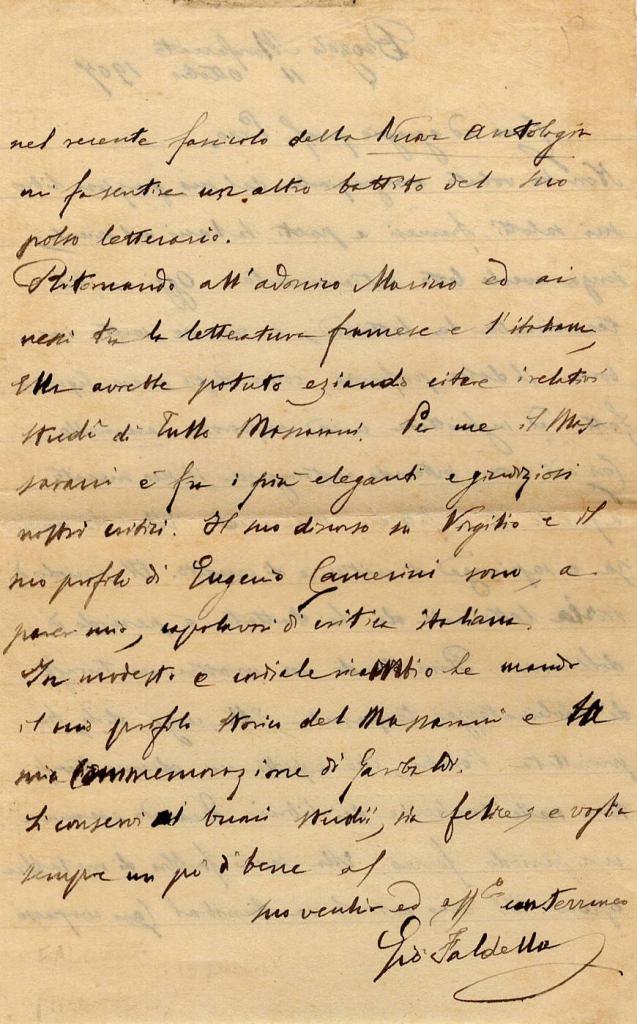 nel recente fascicolo della Nuova Antologia
mi fa sentire un altro battito del suo
polso letterario.
Ritornando all'adonico Marino ed ai
nessi tra la letteratura francese e l'italiana,
Ella avrebbe potuto eziando citare i relativi
studî di Tullo Massarani. Per me il Mas-
sarani è fra i più eleganti e giudiziosi
nostri critici. Il suo discorso su Virgilio e il
suo profilo di Eugenio Camerini sono, a
parer mio, capolavori di critica italiana.
In modesto e cordiale ricambio Le mando
il mio profilo storico del Massarani e la
mia Commemorazione di Garibaldi.
Si conservi ai buoni studii, sia felice, e voglia
sempre un po' di bene al
suo ed aff. conterraneo
Gio Faldella